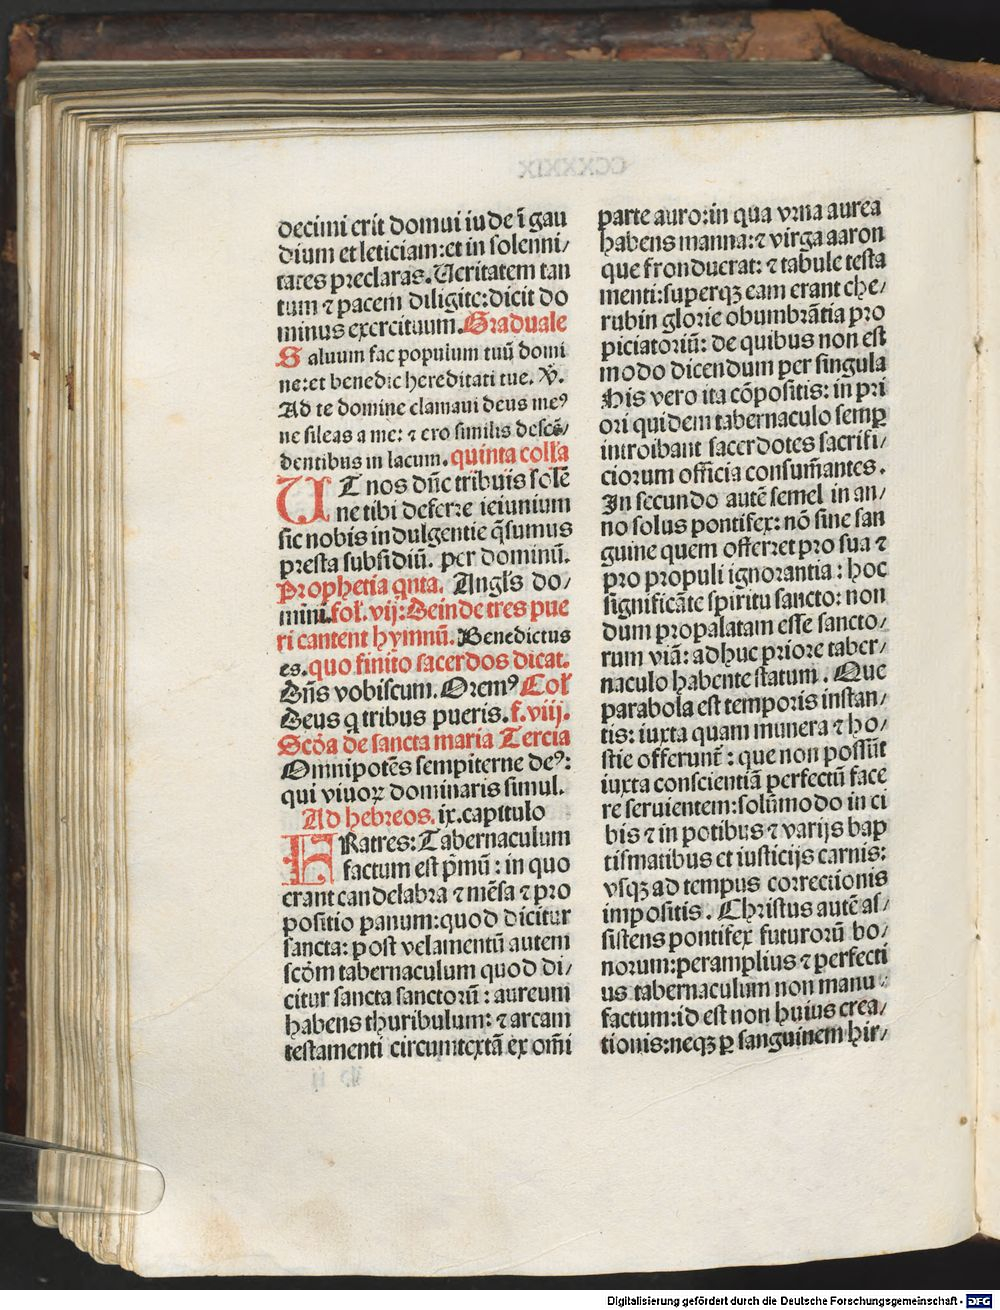 decimi erit domui iude ī gau
dium et leticiam:et in solenni/
tates preclaras. Ueritatem tan
tum ⁊ pacem diligite:dicit do
minus exercituum. Graduale
Saluum fac populum tuū domi
ne:et benedic hereditati tue. V̄.
Ad te domine clamaui deus meꝰ
ne sileas a me: ⁊ ero similis descē/
dentibus in lacum. quinta coll'a
UT nos dn̄e tribuis solē
ne tibi deferre ieiunium
sic nobis indulgentie q̄sumus
presta subsidiū. per dominū.
Prophetia qnta. Angl's do/
mini. fol. vij: Deinde tres pue
ri cantent hymnū. Benedictus
es. quo finito sacerdos dicat.
Dn̄s vobiscum. Oremꝰ Coll'
Deus q tribus pueris. f. viij.
Scḋa de sancta maria Tercia
Omnipotēs sempiterne deꝰ:
qui viuoꝝ dominaris simul.
Ad hebreos. ix. capitulo
FRatres: Tabernaculum
factum est p̄mū: in quo
erant candelabra ⁊ mēsa ⁊ pro
positio panum:quod dicitur
sancta: post velamentū autem
scḋm tabernaculum quod di/
citur sancta sanctorū: aureum
habens thuribulum: ⁊ arcam
testamenti circumtextā ex om̄i
parte auro:in qua vrna aurea
habens manna:⁊ virga aaron
que fronduerat: ⁊ tabule testa
menti:superqꝫ eam erant che/
rubin glorie obumbrātia pro
piciatoriū: de quibus non est
modo dicendum per singula
His vero ita cōpositis: in pri
ori quidem tabernaculo semꝑ
introibant sacerdotes sacrifi/
ciorum officia consum̄antes.
In secundo autē semel in an/
no solus pontifex: nō sine san
guine quem offerret pro sua ⁊
pro propuli ignorantia: hoc
significāte spiritu sancto: non
dum propalatam esse sancto/
rum viā: adhuc priore taber/
naculo habente statum. Que
parabola est temporis instan/
tis: iuxta quam munera ⁊ ho/
stie offerunt̄: que non possūt
iuxta conscientiā perfectū face
re seruientem:solūmodo in ci
bis ⁊ in potibus ⁊ varijs bap
tismatibus et iusticijs carnis:
vsqꝫ ad tempus correctionis
impositis. Christus autē as/
sistens pontifex futurorū bo/
norum:peramplius ⁊ perfecti
us tabernaculum non manu/
factum:id est non huius crea/
tionis:neqꝫ ꝑ sanguinem hir/
Digitalisierung gefördert durch die Deutsche Forschungsgemeinschaft - DFG